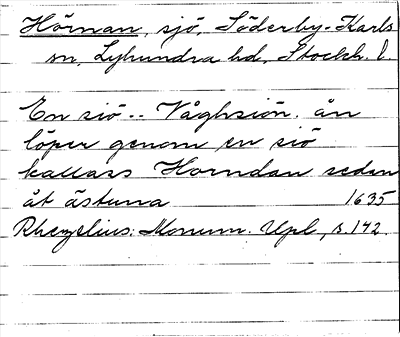 Hörnan, sjö, Söderby-Karls
sn, Lyhundra hd, Stockh. l.
En siö .. Våghsiön. ån
löper genom en siö
kallass Horndan sedan
åt ästuna 1635
Rhezelius: Monum. Upl., s. 142.